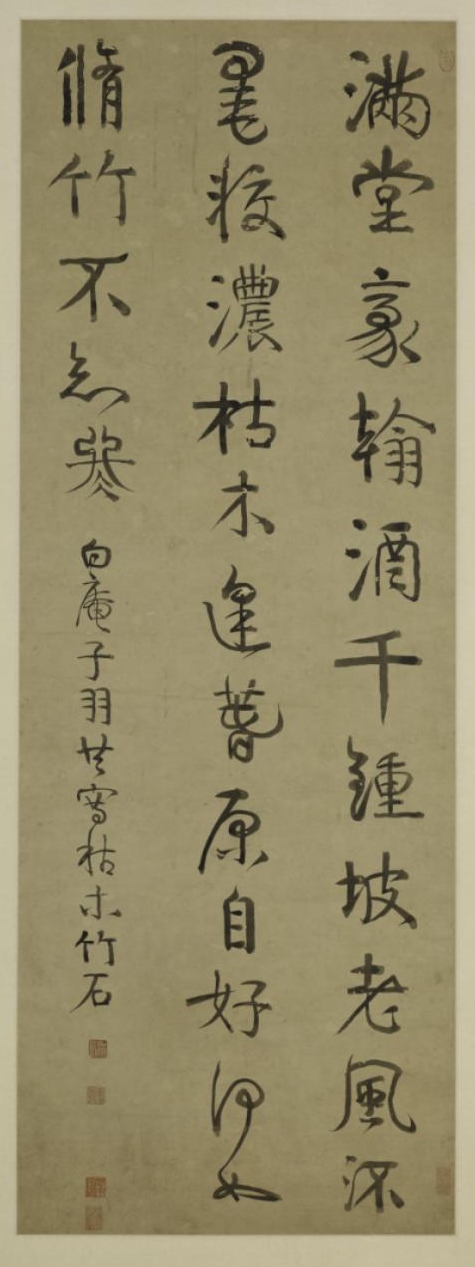 滿堂豪翰酒千鍾坡老風流
墨濃枯木逢萅原自好何如
脩竹不
白庵子羽共寫枯木竹石